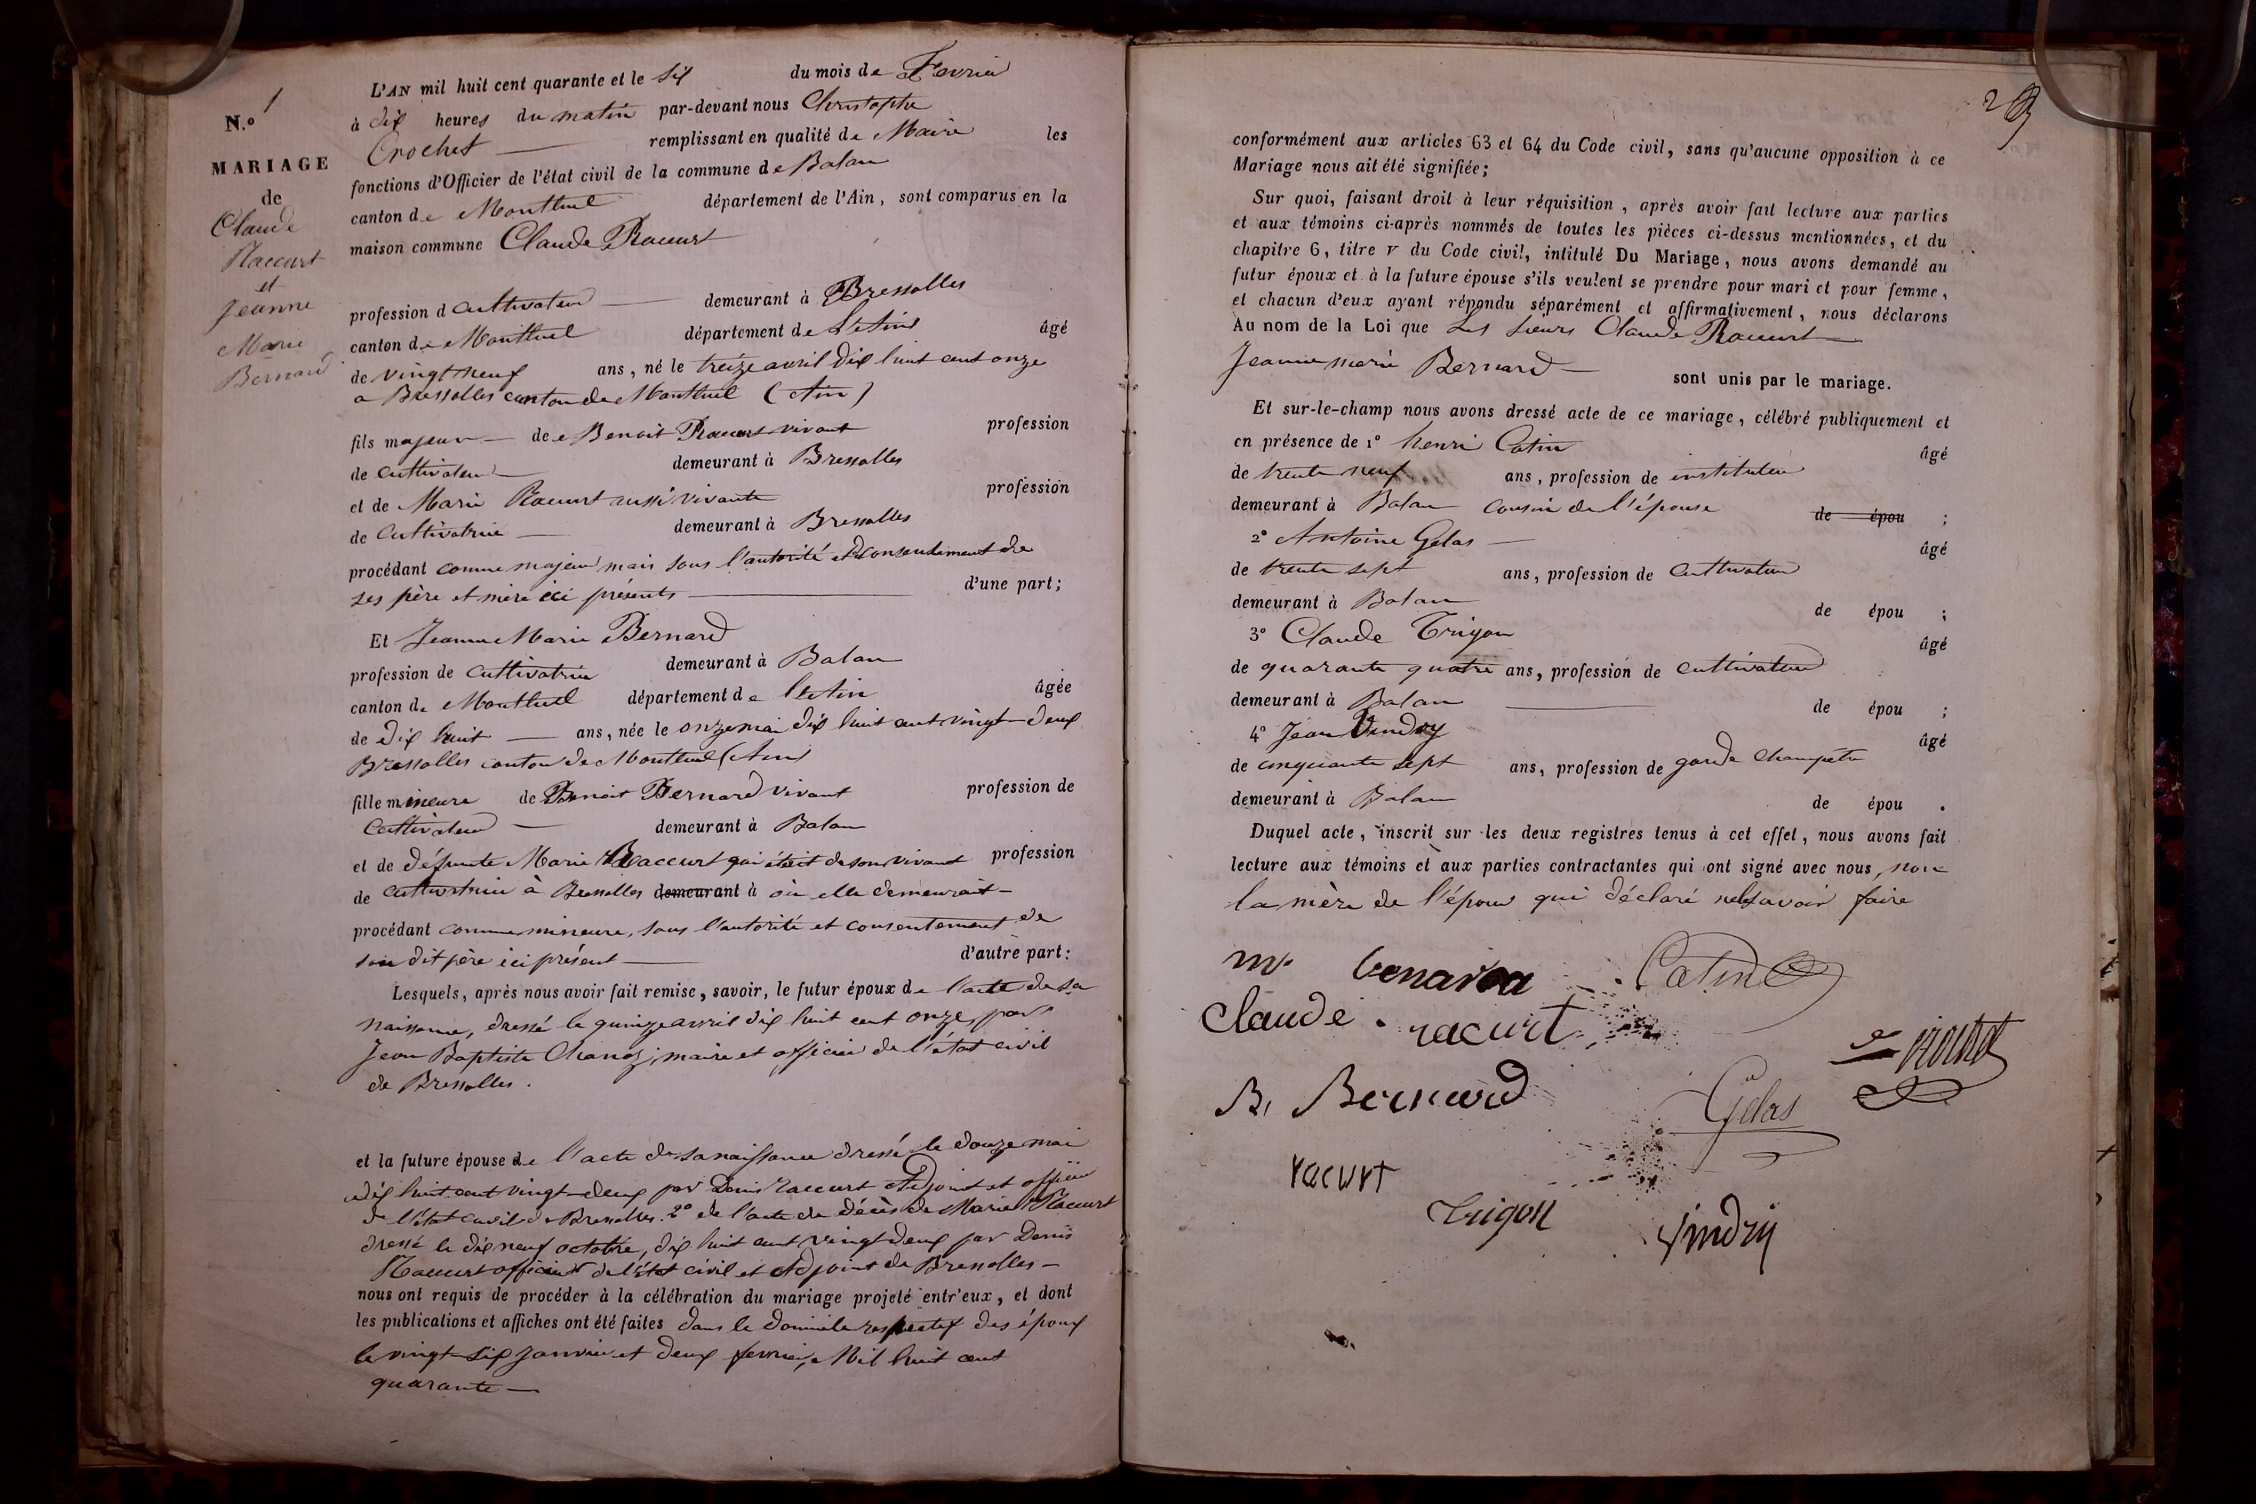 N.o 1
MARIAGE
de
Claude
Raccurt
et
Jeanne
Marie
Bernard
L'AN mil huit cent quarante et le six du mois de Fevrier
à dix heures du matin par-devant nous Christophe
Crochet remplissant en qualité de Maire les
fonctions d'Officier de l'état civil de la commune de Balan
canton de Montluel département de l'Ain, sont comparus en la
maison commune Claude Raccurt
profession d cultivateur demeurant à Bressolles
canton de Montluel département de L'Ain âgé
de vingt neuf ans, né le treize avril dix huit cent onze
a Bressolles canton de Montluel (Ain)
fils majeur de Benoit Raccurt vivant profession
de cultivateur demeurant à Bressolles
et de Marie Raccurt aussi vivante profession
de cultivatrice demeurant à Bressolles
procédant comme majeur mais sous l'autorité et consentement de
ses père et mère ici présents d'une part;
Et Jeanne Marie Bernard
profession de cultivatrice demeurant à Balan
canton de Montluel département de l'Ain âgée
de dix huit ans, née le onze mai dix huit cent vingt-deux
Bressolles canton de Montluel (Ain)
fille mineure de Benoit Bernard vivant profession de
Cultivateur demeurant à Balan
et de défunte Marie Raccurt qui était de son vivant profession
de cultivatrice à Bressolles demeurant à où elle demeurait
procédant comme mineure, sous l'autorité et consentement de
son dit père ici présent d'autre part:
Lesquels, après nous avoir fait remise, savoir, le futur époux de l'acte de sa
naissance, dressé le quinze avril dix huit cent onze, par
Jean Baptiste Chanoz, maire et officier de l'état civil
de Bressolles.
et la future épouse de l'acte de sa naissance dressé le douze mai
dix huit cent vingt-deux par Denis Raccurt Adjoint et officier
de l'état civil de Bressolles. 2o de l'acte de décès de Marie Raccurt
dressé le dix neuf octobre, dix huit cent vingt deux par Denis
Raccurt officier de l'état civil et Adjoint de Bressolles
nous ont requis de procéder à la célébration du mariage projeté entr'eux, et dont
les publications et affiches ont été faites dans le domicile respectif des époux
le vingt-six janvier et deux fevrier, Mil huit cent
quarante
conformément aux articles 63 et 64 du Code civil, sans qu'aucune opposition à ce
Mariage nous ait été signifiée;
Sur quoi, faisant droit à leur réquisition, après avoir fait lecture aux parties
et aux témoins ci-après nommés de toutes les pièces ci-dessus mentionnées, et du
chapitre 6, titre V du Code civil, intitulé Du Mariage, nous avons demandé au
futur époux et à la future épouse s'ils veulent se prendre pour mari et pour femme,
et chacun d'eux ayant répondu séparément et affirmativement, nous déclarons
Au nom de la Loi que Les sieurs Claude Raccurt
Jeanne marie Bernard sont unis par le mariage.
Et sur-le-champ nous avons dressé acte de ce mariage, célébré publiquement et
en présence de 1o henri Catin âgé
de trente neuf ans, profession de instituteur
demeurant à Balan cousin de l'épouse de épou ;
2o Antoine Gelas âgé
de trente sept ans, profession de cultivateur
demeurant à Balan de épou ;
3o Claude Trigon âgé
de quarante quatre ans, profession de cultivateur
demeurant à Balan de épou ;
4o Jean Vindry âgé
de cinquante sept ans, profession de garde champêtre
demeurant à Balan de épou .
Duquel acte, inscrit sur les deux registres tenus à cet effet, nous avons fait
lecture aux témoins et aux parties contractantes qui ont signé avec nous, non
la mère de l'époux qui déclaré ne savoir faire
Catin
Claude racurt
Crochet
B. Bernard
Gelas
racurt
Trigon
Vindry